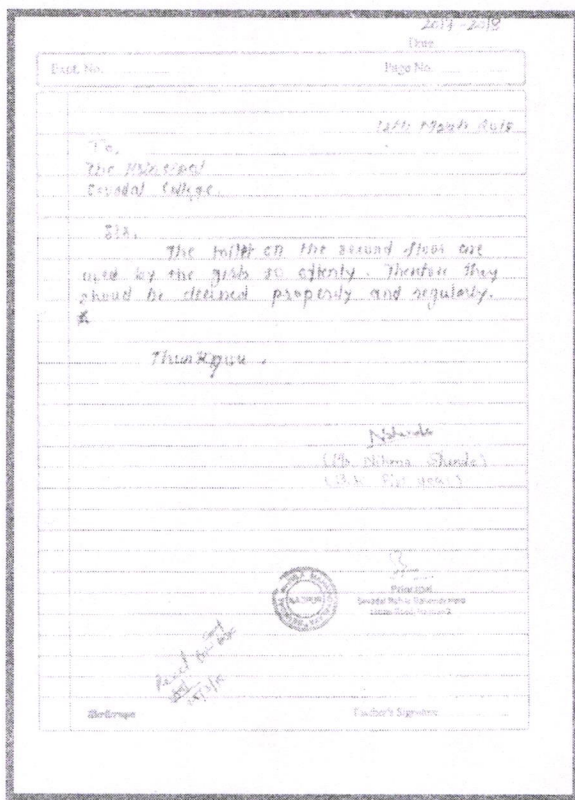 2017-2018
Date
Expt. No.
Page No.
12th March 2018
To,
The Principal
Sevadal College.
Sir,
The toilet on the second floor are
used by the girls so oftenly. Therefore they
shoud be cleaned properly and regularly.
Thankyou.
Nshende
(Ms. Nikma Shende)
Principal
Sevadal Mahila Mahavidyalaya
NAGPUR
Teacher's Signature